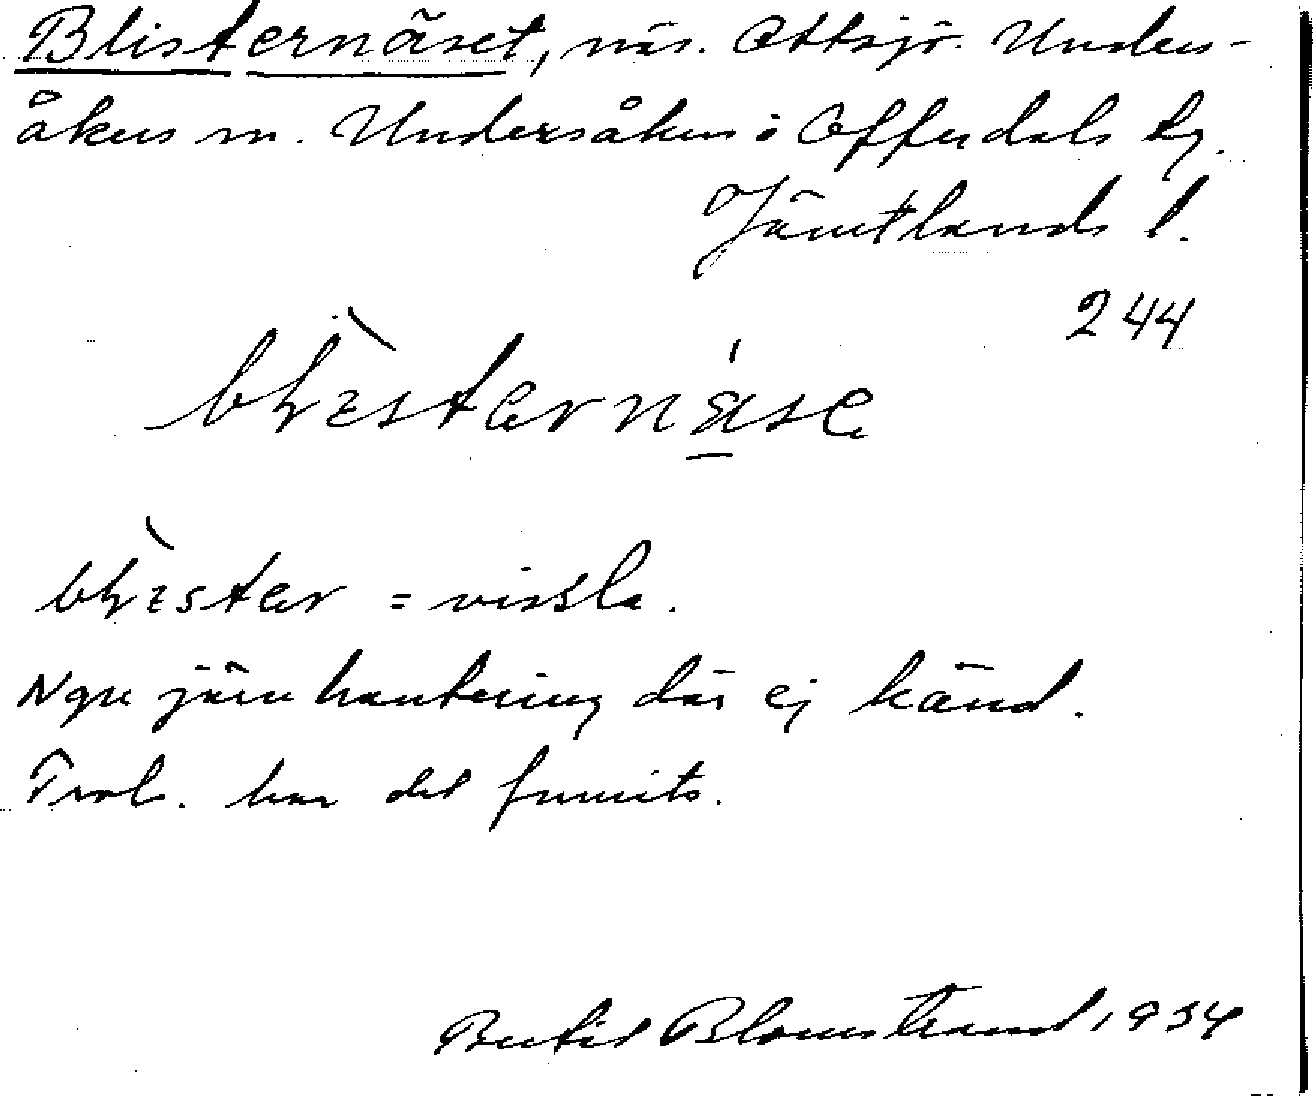 Blisternäset, näs. Ottsjö. Unders-
åkers sn. Undersåkers o Offerdals tg.
Jämtlands l.
244
bḷɪ̀stərnä́sə
bḷɪ̀stər = vissla.
Ngn järnhantering där ej känd.
Trol. har det funnits.
Bertil Blomstrand 1934